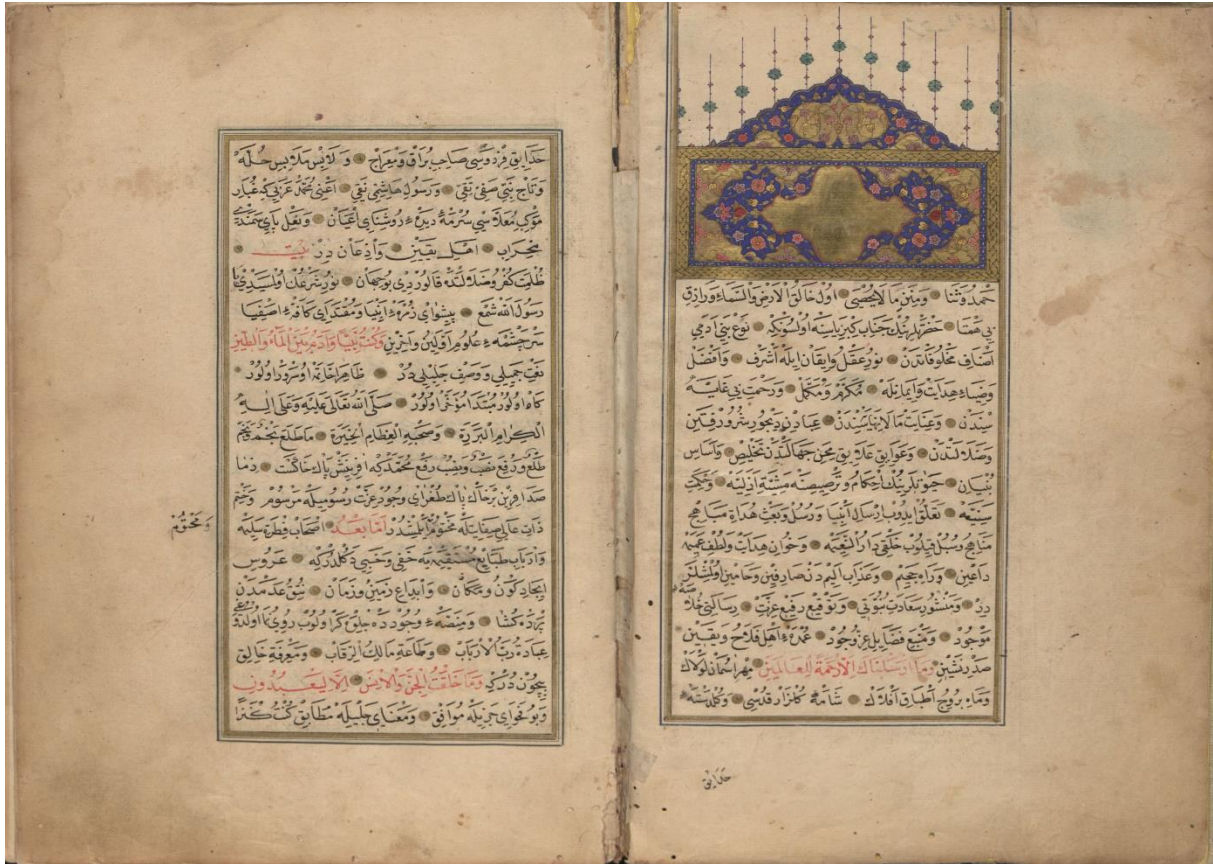 حمد و ثنا ۞ ومنن ما لا یحصی ۞ اول خالق الارض والسماء و رازق
بی همتا ۞ حضرتلرینک جناب کبریاسنه اولسونکه ۞ نوع بنی ادمی
اصناف مخلوقاتدن ۞ نور عقل و ایقان ایله اشرف ۞ وافضل
وضیاء هدایت و ایمانله ۞ مکرم و مکمل ۞ و رحمت بی غایه
سندن ۞ وعنایت ما لا نهایه سندن ۞ عبادن دیجور شرور فتن
وضلالتدن ۞ وعوایق علایق محن جهالتدن تخلیص ۞ واساس
بنیان ۞ احکام و ترصیصنه مشیت ازلیه ۞ وحکمت
سنیه ۞ تعلق ایدوب ارسال انبیا و رسل و بعث هداة مباهج
مناهج وسبل قیلوب خلقی دار النعیمه ۞ وخوان هدایت ولطف عمیمه
داعین ۞ و راه جحیم ۞ وعذاب الیم دن صادقین وحامین اولمشلر
در ۞ ومنشور سعادت نبوتی ۞ وتوقیع رفیع عزت ۞ رسالتی خلاصهٔ
موجود ۞ ومنبع فضایل عز وجود ۞ عمدهٔ اهل فلاح و یقین
صدر نشین وما ارسلناك الا رحمة للعالمین مهر اسمان لولاك
وماه بروج اطباق افلاك ۞ شامهٔ کلزار قدسی ۞ وکلدستهٔ
حدایق
حدایق فردوسی صاحب براق ومعراج ۞ ولابس ملابس حله
وتاج نبی صفی تقی ۞ ورسول هاشمی نقی ۞ اعنی محمد عربی که غبار
موکب معلاسی سرمهٔ دیدهٔ روشنای اعیان ۞ ونعل پای سمندی
محراب ۞ اهل یقین ۞ واذعان در بیت
ظلمت کفر وضلالتده قالوردی بو جهان ۞ نور شرعک اولمسیدی یا
رسول الله شمع ۞ پیشوای زمرهٔ انبیا ومقتدای کافهٔ اصفیا
سرچشمهٔ علوم اولین واخرین وکنت نبیا وادم بین الماء والطین
نعت جمیلی و وصف جلیلی در ۞ ظاهرا خاتمه اوسرور اولور
کاه اولور مبتدا مؤخر اولور ۞ صلی الله تعالی علیه وعلی اله
الکرام البررة ۞ وصحبه العظام الخیرة ۞ ما طلع نجم ونجم
طلع و رفع نصب ونصب رفع محمد که افرینش پاك خاکست ۞
صد افرین بر جان پاك طغرای وجود عزت رسومیله مرسوم وختم
ومختوم
ذات عالی صفاتیله مختوم قیلمشدر اما بعد اصحاب فطر سلیمه
وارباب طبایع مستقیمه یه خفی وخبی دکلدرکه ۞ عروس
ایجاد کون و مکان ۞ وابداع زمین و زمان ۞ تتق عدمدن
پرده کشا ۞ ومنصهٔ وجودده جلوه کر اولوب رونما اولدوغی
عبادة رب الارباب ۞ وطاعة مالك الرقاب ۞ ومعرفة خالق
بیچون درکه وما خلقت الجن والانس ۞ الا لیعبدون
وبو فحوای جزیله موافق ۞ ومعنای جلیله مطابق کنت کنزا